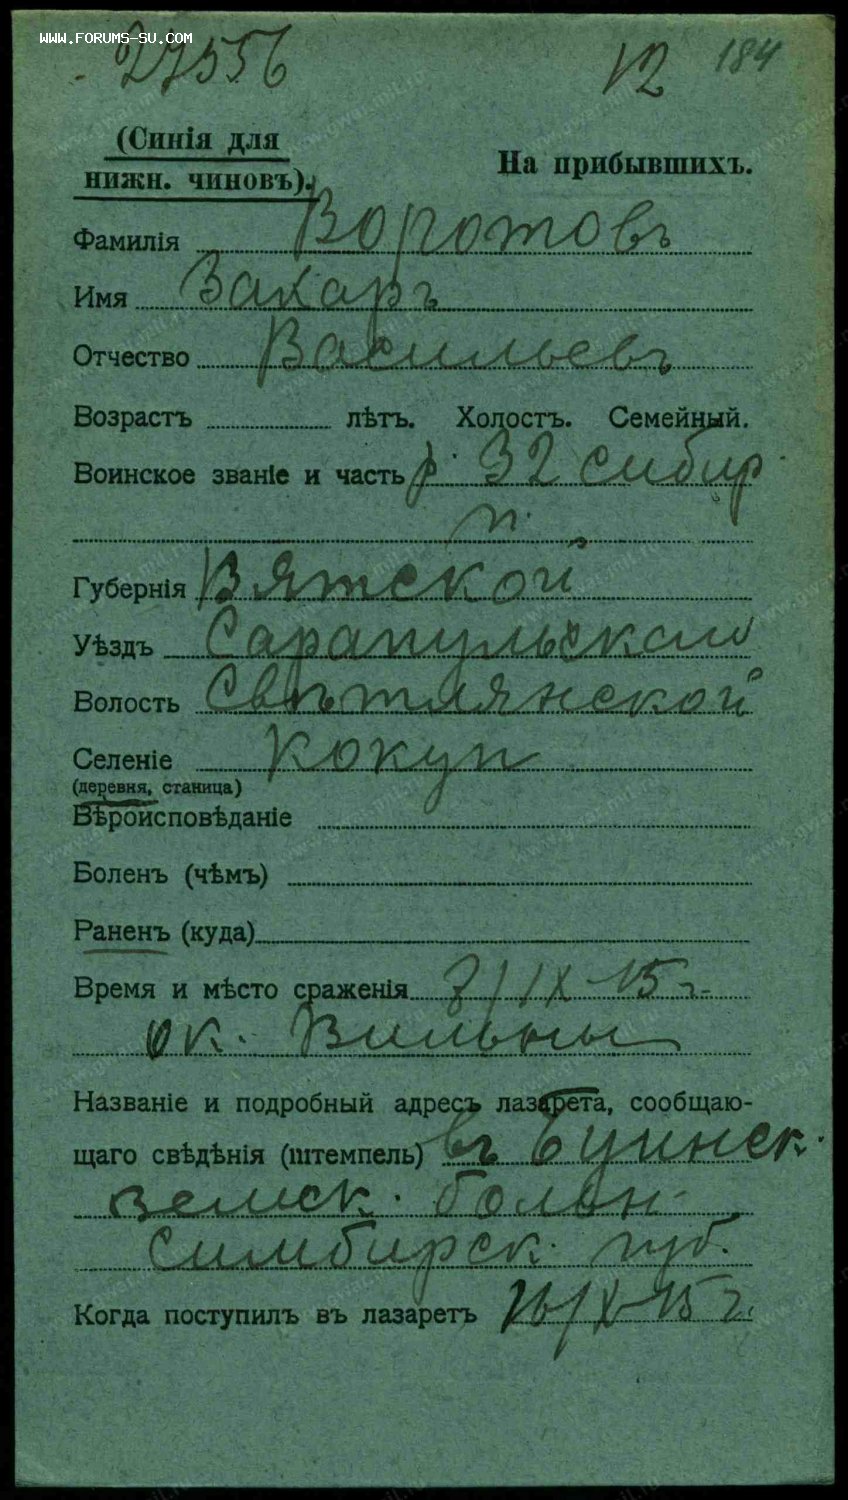 WWW.FORUMS-SU.COM
27556 12 184
(Синія для
нижн. чиновъ). На прибывшихъ.
Фамилія Воротовъ
Имя Захаръ
Отчество Васильевъ
Возрастъ лѣтъ. Холостъ. Семейный.
Воинское званіе и часть р. 32 сибир.
п.
Губернія Вятской
Уѣздъ Сарапульскаго
Волость Свѣтлянской
Селеніе Кокуй
(деревня, станица)
Вѣроисповѣданіе
Боленъ (чѣмъ)
Раненъ (куда)
Время и мѣсто сраженія 8/IX-15 г.
ок. Вильны
Названіе и подробный адресъ лазарета, сообщаю-
щаго свѣдѣнія (штемпель) въ Буинск.
земск. больн.
Симбирск. губ.
Когда поступилъ въ лазаретъ /X-15 г.